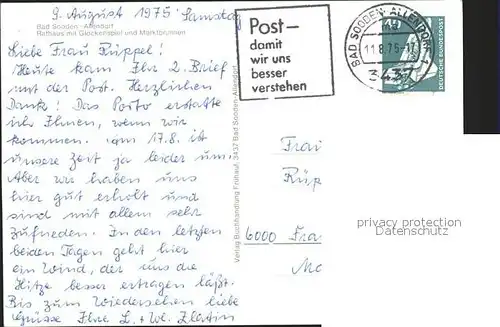 9. August 1975 Samstag
Bad Sooden-Allendorf
Rathaus mit Glockenspiel und Marktbrunnen
Liebe Frau Rüppel!
Heute kam Ihr 2. Brief
mit der Post. Herzlichen
Dank! Das Porto erstatte
ich Ihnen, wenn wir
kommen. Am 17.8. ist
unsere Zeit ja leider um.
Aber wir haben uns
hier gut erholt und
sind mit allem sehr
zufrieden. In den letzten
beiden Tagen geht hier
ein Wind, der uns die
Hitze besser ertragen läßt.
Bis zum Wiedersehen liebe
Grüsse Ihre L. + W.
Verlag Buchhandlung Frühauf, 3437 Bad Sooden-Allendorf
Post–
damit
wir uns
besser
verstehen
BAD SOODEN-ALLENDORF 1
11.8.75-17
3437
DEUTSCHE BUNDESPOST
Frau
Rüp
6000 Fra
privacy protection
Datenschutz